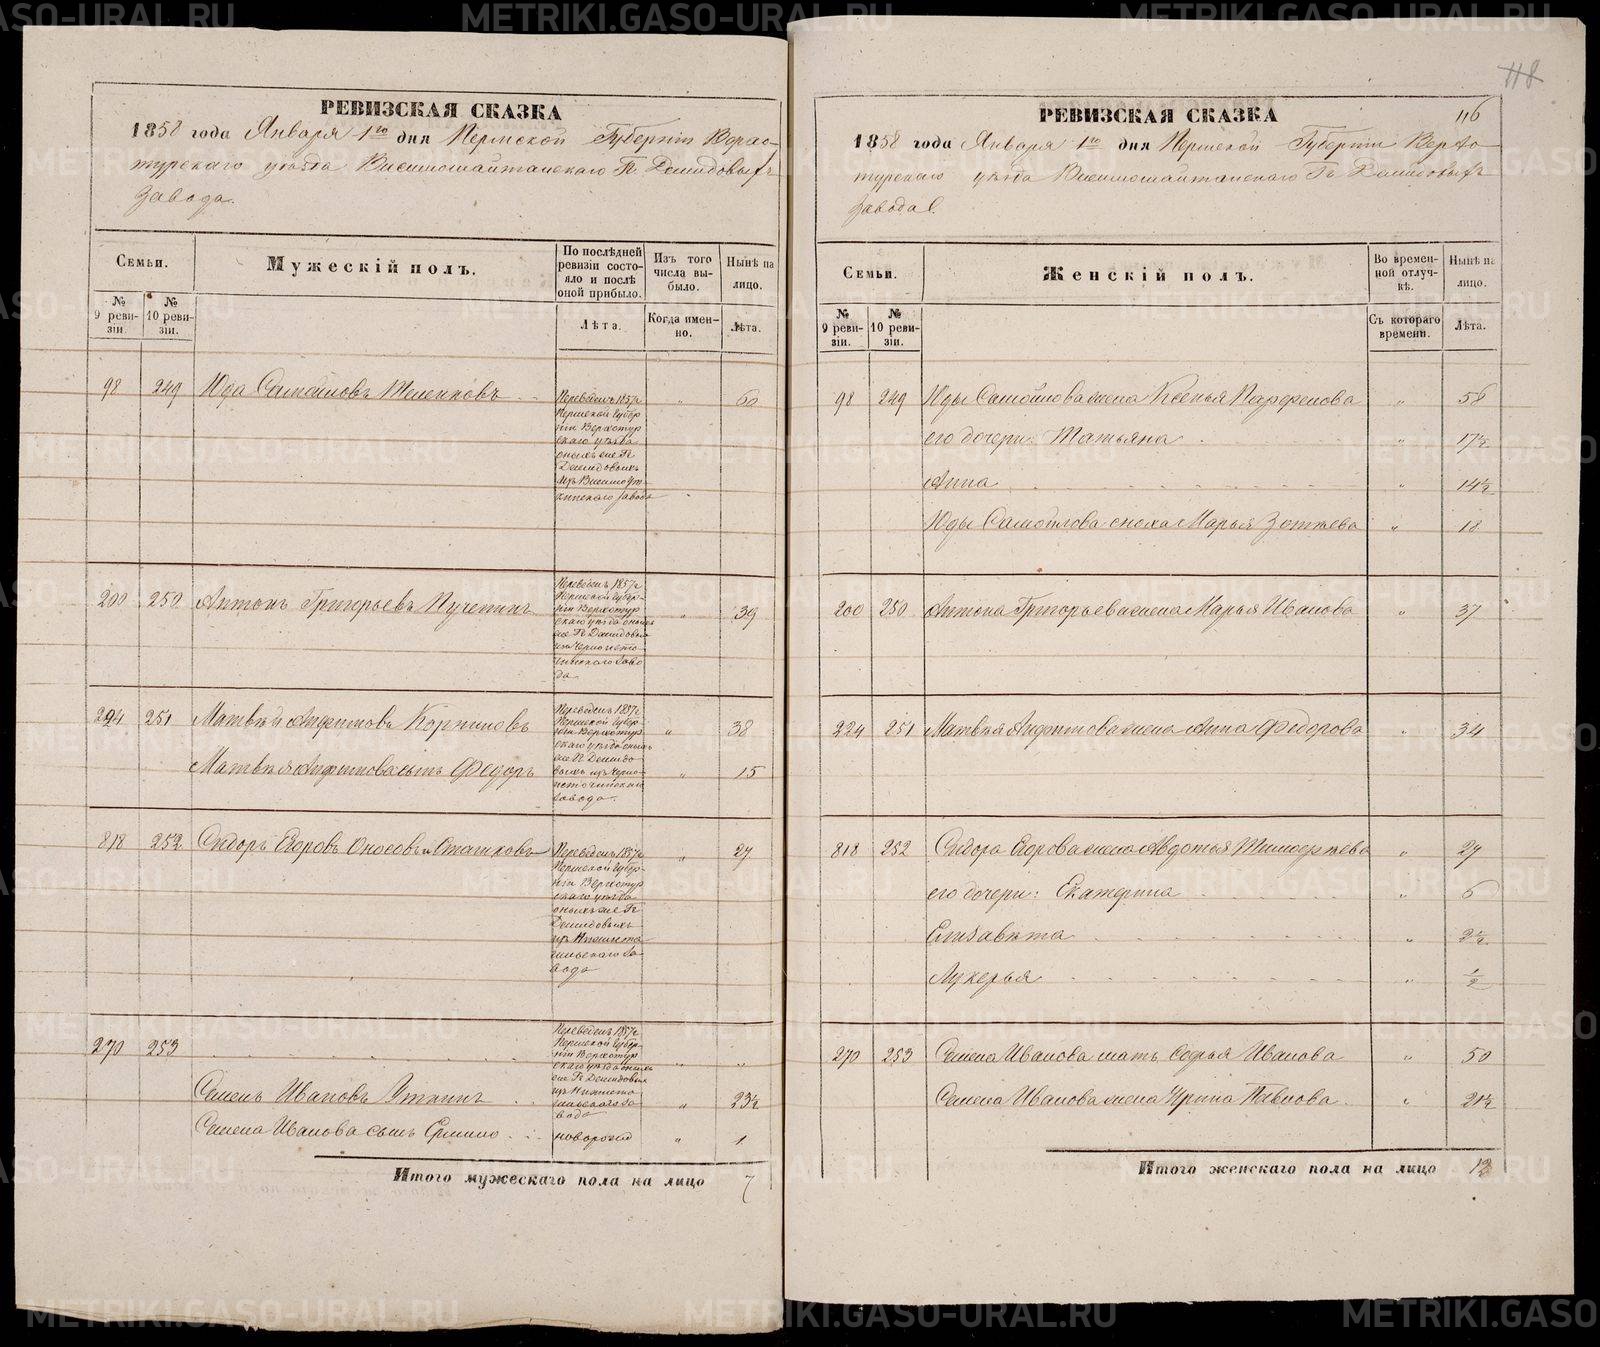 РЕВИЗСКАЯ СКАЗКА
1858 года Января 1го дня Пермской Губернiи Верхо-
турскаго уѣзда Висимошайтанскаго Гг. Демидовыхъ
завода.
Семьи.
Мужескiй полъ.
По послѣдней
ревизiи состо-
яло и послѣ
оной прибыло.
Изъ того
числа вы-
было.
Нынѣ на
лицо.
№
9 реви-
зiи.
№
10 реви-
зiи.
Лѣта.
Когда имен-
но.
Лѣта.
98 249 Юда Самойловъ 60
Переведенъ 1857г
Пермской Губер
нiи Верхотур
скаго уѣзда
оныхъ же Гг
Демидовыхъ
изъ Висимоут
кинскаго завода
200 250 Антонъ Григорьевъ 39
Переведенъ 1857г
Пермской Губер-
нiи Верхотур
скаго уѣзда оныхъ
же Гг Демидовыхъ
изъ Черноисто-
чинскаго заво
да
224 251 Матвѣй 38
Матвѣя сынъ Федоръ 15
Переведенъ 1857г
Пермской Губер-
нiи Верхотур
скаго уѣзда оныхъ
же Гг Демидо
выхъ изъ Черно-
источинскаго
завода.
818 252 Сидоръ Егоровъ 27
Переведенъ 1857г
Пермской Губер-
нiи Верхотур
скаго уѣзда
оныхъ же Гг
Демидовыхъ
изъ Нижнета
гильскаго за-
вода
270 253
Переведенъ 1857г
Пермской Губер-
нiи Верхотур
скаго уѣзда оныхъ
же Гг Демидовыхъ
изъ Нижнета
гильскаго за-
вода
Семенъ Ивановъ Уткинъ 23½
Семена Иванова сынъ новорожд 1
Итого мужескаго пола на лицо 7
118
116
РЕВИЗСКАЯ СКАЗКА
1858 года Января 1го дня Пермской Губернiи Верхо-
турскаго уѣзда Висимошайтанскаго Гг Демидовыхъ
завода
Семьи.
Женскiй полъ.
Во времен-
ной отлуч-
кѣ.
Нынѣ на
лицо.
№
9 реви-
зiи.
№
10 реви-
зiи.
Съ котораго
времени.
Лѣта.
98 249 Юды Самойлова жена Ксенья Парфенова 58
его дочери: Татьяна 17½
Анна 14½
Юды Самойлова сноха Марья Зотѣева 18
200 250 Антона Григорьева жена Марья Иванова 37
224 251 Матвѣя жена Анна Федорова 34
818 252 Сидора Егорова жена Авдотья Тимофѣева 27
его дочери: Екатерина 6
Елизавѣта 2½
Лукерья ½
270 253 Семена Иванова мать Софья Иванова 50
Семена Иванова жена Ирина Павлова 21½
Итого женскаго пола на лицо 12
METRIKI.GASO-URAL.RU